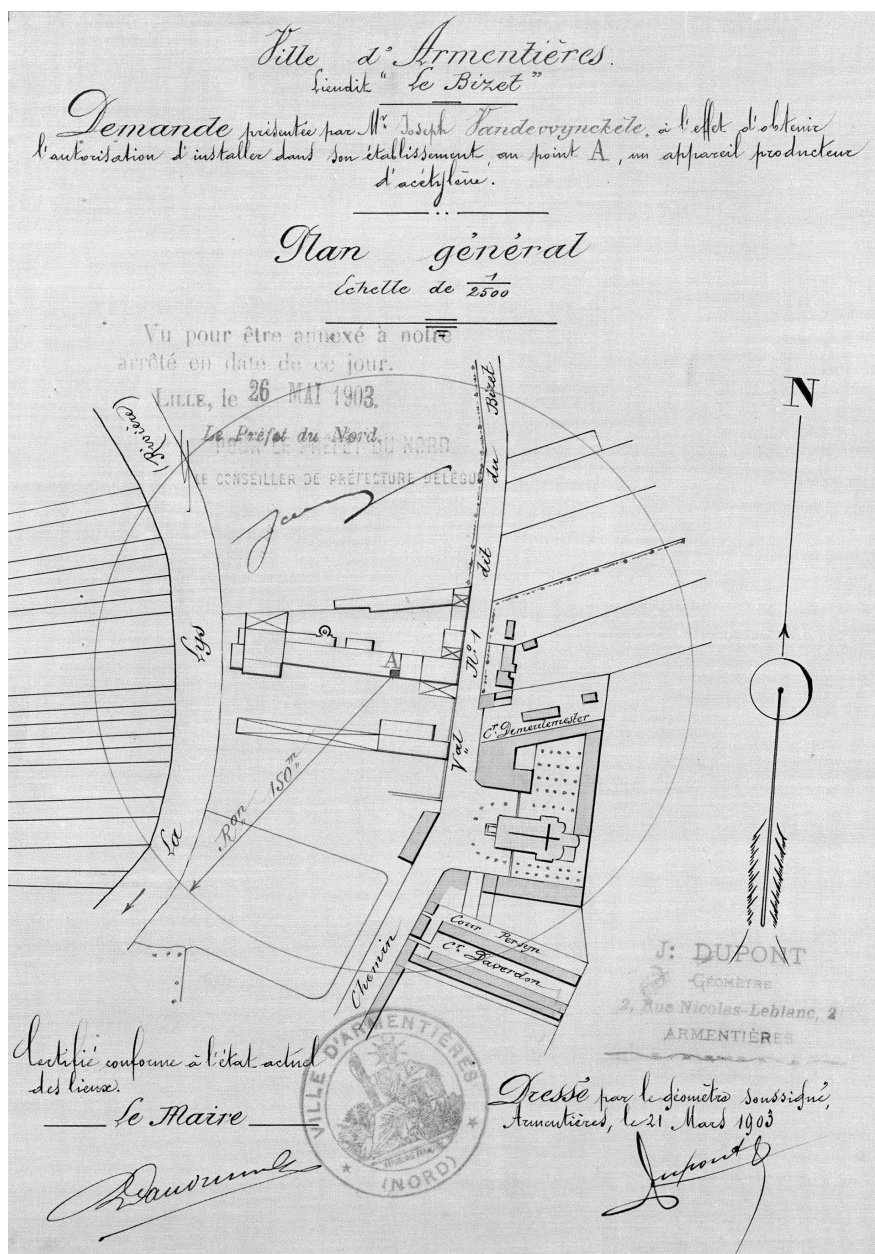 Ville d'Armentières.
Lieudit "Le Bizet"
Demande présentée par Mr Joseph Vandewynckèle, à l'effet d'obtenir
l'autorisation d'installer dans son établissement, au point A, un appareil producteur
d'acétylène.
Plan général
Echelle de 1/2500
Vu pour être annexé à notre
arrêté en date de ce jour.
LILLE, le 26 MAI 1903.
Le Préfet du Nord.
POUR LE PRÉFET DU NORD
LE CONSEILLER DE PRÉFECTURE DÉLÉGUÉ
N
(Rivière)
Lys
La
A
Ron 150m
Chemin Val N° 1 dit du Bizet
Cr Demeulemester
Cour Persyn
Cr Daverdon
J: DUPONT
GÉOMÈTRE
2, Rue Nicolas-Leblanc, 2
ARMENTIÈRES
Certifié conforme à l'état actuel
des lieux.
Le Maire
VILLE D'ARMENTIÈRES
(NORD)
Dressé par le géomètre soussigné,
Armentières, le 21 Mars 1903
Dupont